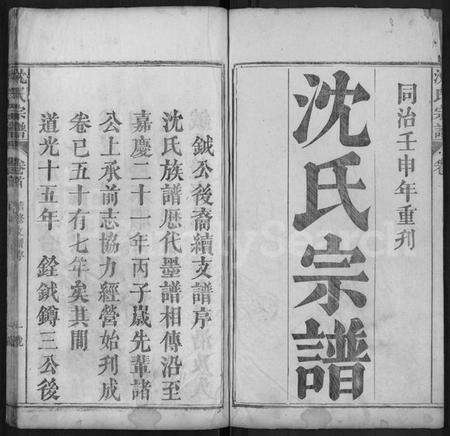 同治壬申年重刊
沈氏宗譜
鉞公後裔續支譜序
沈氏族譜歷代墨譜相傳沿至
嘉慶二十一年丙子歲先輩諸
公上承前志協力經營始刋成
卷已五十有七年矣其間
道光十五年 銓鉞鐏三公後
沈氏宗譜
卷首
沈氏宗譜
卷